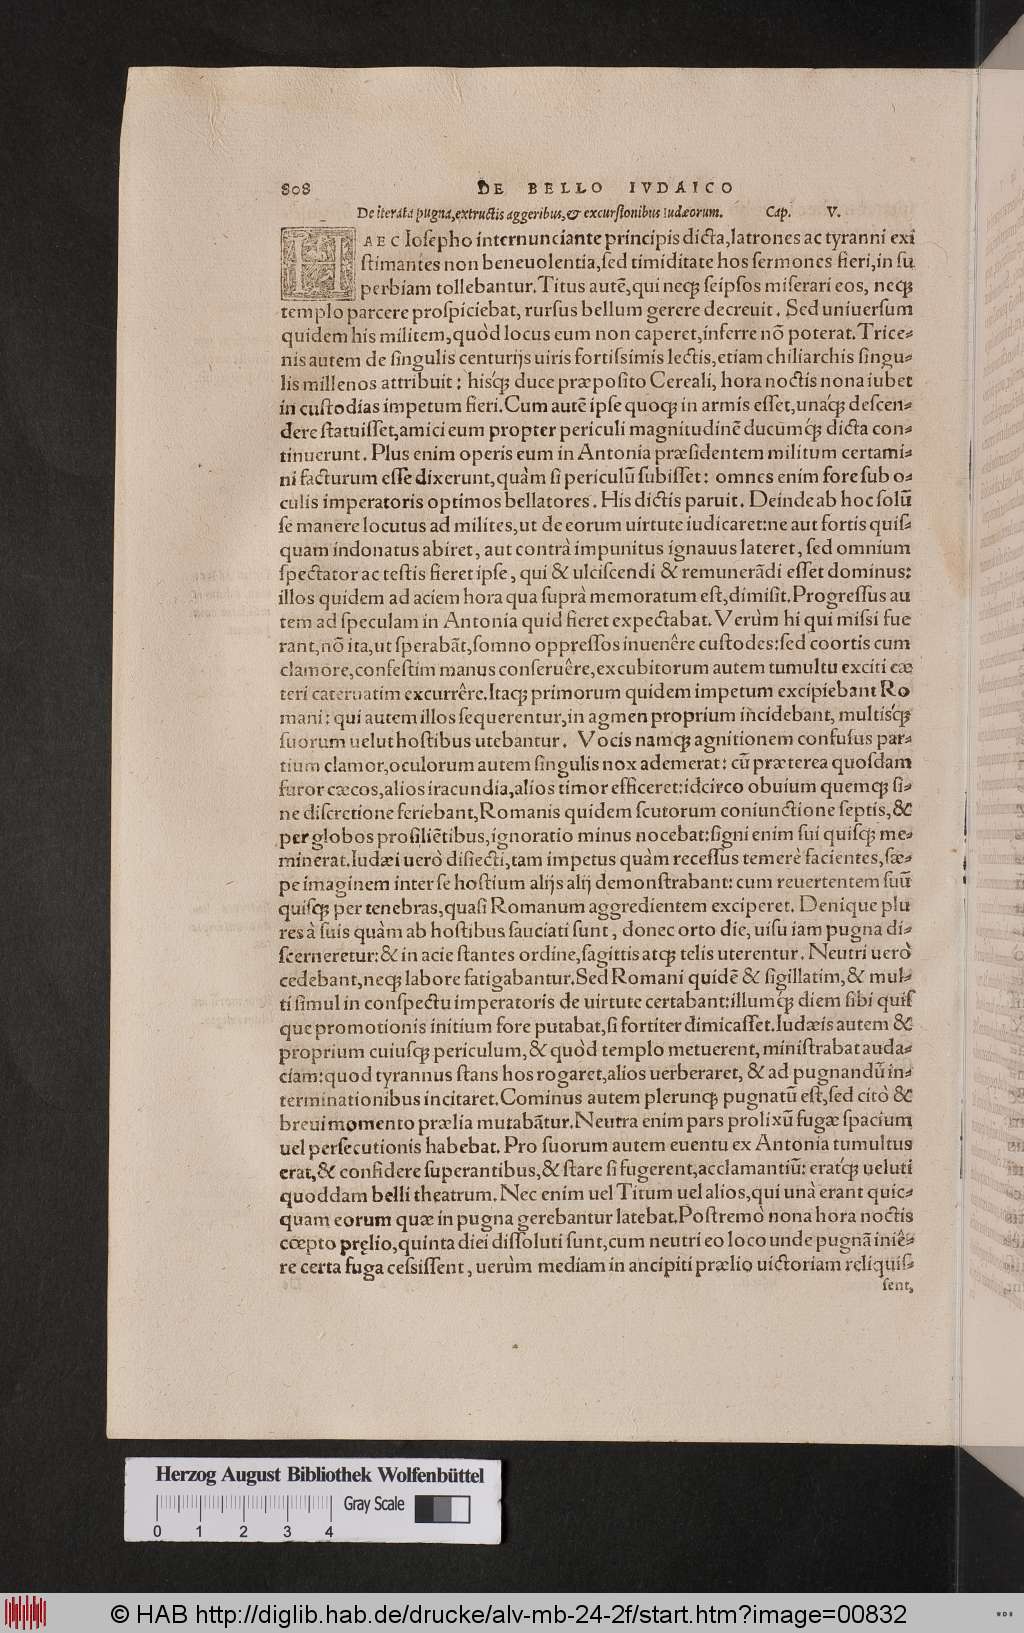 808 DE BELLO IVDAICO
De iterata pugna, extructis aggeribus, & excursionibus Iudæorum. Cap. V.
HAEC Iosepho internunciante principis dicta, latrones ac tyranni exi
stimantes non beneuolentia, sed timiditate hos sermones fieri, in su
perbiam tollebantur. Titus autē, qui neqȝ seipsos miserari eos, neqȝ
templo parcere prospiciebat, rursus bellum gerere decreuit. Sed uniuersum
quidem his militem, quòd locus eum non caperet, inferre nō poterat. Trice-
nis autem de singulis centurijs uiris fortissimis lectis, etiam chiliarchis singu-
lis millenos attribuit: hisq́ȝ duce præposito Cereali, hora noctis nona iubet
in custodias impetum fieri. Cum autē ipse quoqȝ in armis esset, unaq́ȝ descen-
dere statuisset, amici eum propter periculi magnitudinē ducumq́ȝ dicta con-
tinuerunt. Plus enim operis eum in Antonia præsidentem militum certami-
ni facturum esse dixerunt, quàm si periculū subisset: omnes enim fore sub o-
culis imperatoris optimos bellatores. His dictis paruit. Deinde ab hoc solū
se manere locutus ad milites, ut de eorum uirtute iudicaret: ne aut fortis quis-
quam indonatus abiret, aut contrà impunitus ignauus lateret, sed omnium
spectator ac testis fieret ipse, qui & ulciscendi & remunerādi esset dominus:
illos quidem ad aciem hora qua suprà memoratum est, dimisit. Progressus au
tem ad speculam in Antonia quid fieret expectabat. Verùm hi qui missi fue
rant, nō ita, ut sperabāt, somno oppressos inuenêre custodes: sed coortis cum
clamore, confestim manus conseruêre, excubitorum autem tumultu exciti cæ
teri cateruatim excurrêre. Itaqȝ primorum quidem impetum excipiebant Ro
mani: qui autem illos sequerentur, in agmen proprium incidebant, multisq́ȝ
suorum uelut hostibus utebantur. Vocis namqȝ agnitionem confusus par-
tium clamor, oculorum autem singulis nox ademerat: cū præterea quosdam
furor cæcos, alios iracundia, alios timor efficeret: idcirco obuium quemqȝ si-
ne discretione feriebant, Romanis quidem scutorum coniunctione septis, &
per globos prosiliētibus, ignoratio minus nocebat: signi enim sui quisqȝ me-
minerat. Iudæi uerò disiecti, tam impetus quàm recessus temerè facientes, sæ-
pe imaginem inter se hostium alijs alij demonstrabant: cum reuertentem suū
quisqȝ per tenebras, quasi Romanum aggredientem exciperet. Denique plu
res à suis quàm ab hostibus sauciati sunt, donec orto die, uisu iam pugna di-
scerneretur: & in acie stantes ordine, sagittis atqȝ telis uterentur. Neutri uerò
cedebant, neqȝ labore fatigabantur. Sed Romani quidē & sigillatim, & mul-
ti simul in conspectu imperatoris de uirtute certabant: illumq́ȝ diem sibi quis
que promotionis initium fore putabat, si fortiter dimicasset. Iudæis autem &
proprium cuiusqȝ periculum, & quòd templo metuerent, ministrabat auda-
ciam: quod tyrannus stans hos rogaret, alios uerberaret, & ad pugnandū in-
terminationibus incitaret. Cominus autem plerunqȝ pugnatū est, sed citò &
breui momento prælia mutabātur. Neutra enim pars prolixū fugæ spacium
uel persecutionis habebat. Pro suorum autem euentu ex Antonia tumultus
erat, & confidere superantibus, & stare si fugerent, acclamantiū: eratq́ȝ ueluti
quoddam belli theatrum. Nec enim uel Titum uel alios, qui unà erant quic-
quam eorum quæ in pugna gerebantur latebat. Postremò nona hora noctis
cœpto pręlio, quinta diei dissoluti sunt, cum neutri eo loco unde pugnā iniê-
re certa fuga cessissent, uerùm mediam in ancipiti prælio uictoriam reliquis-
sent,
Herzog August Bibliothek Wolfenbüttel
Gray Scale
0 1 2 3 4
© HAB http://diglib.hab.de/drucke/alv-mb-24-2f/start.htm?image=00832